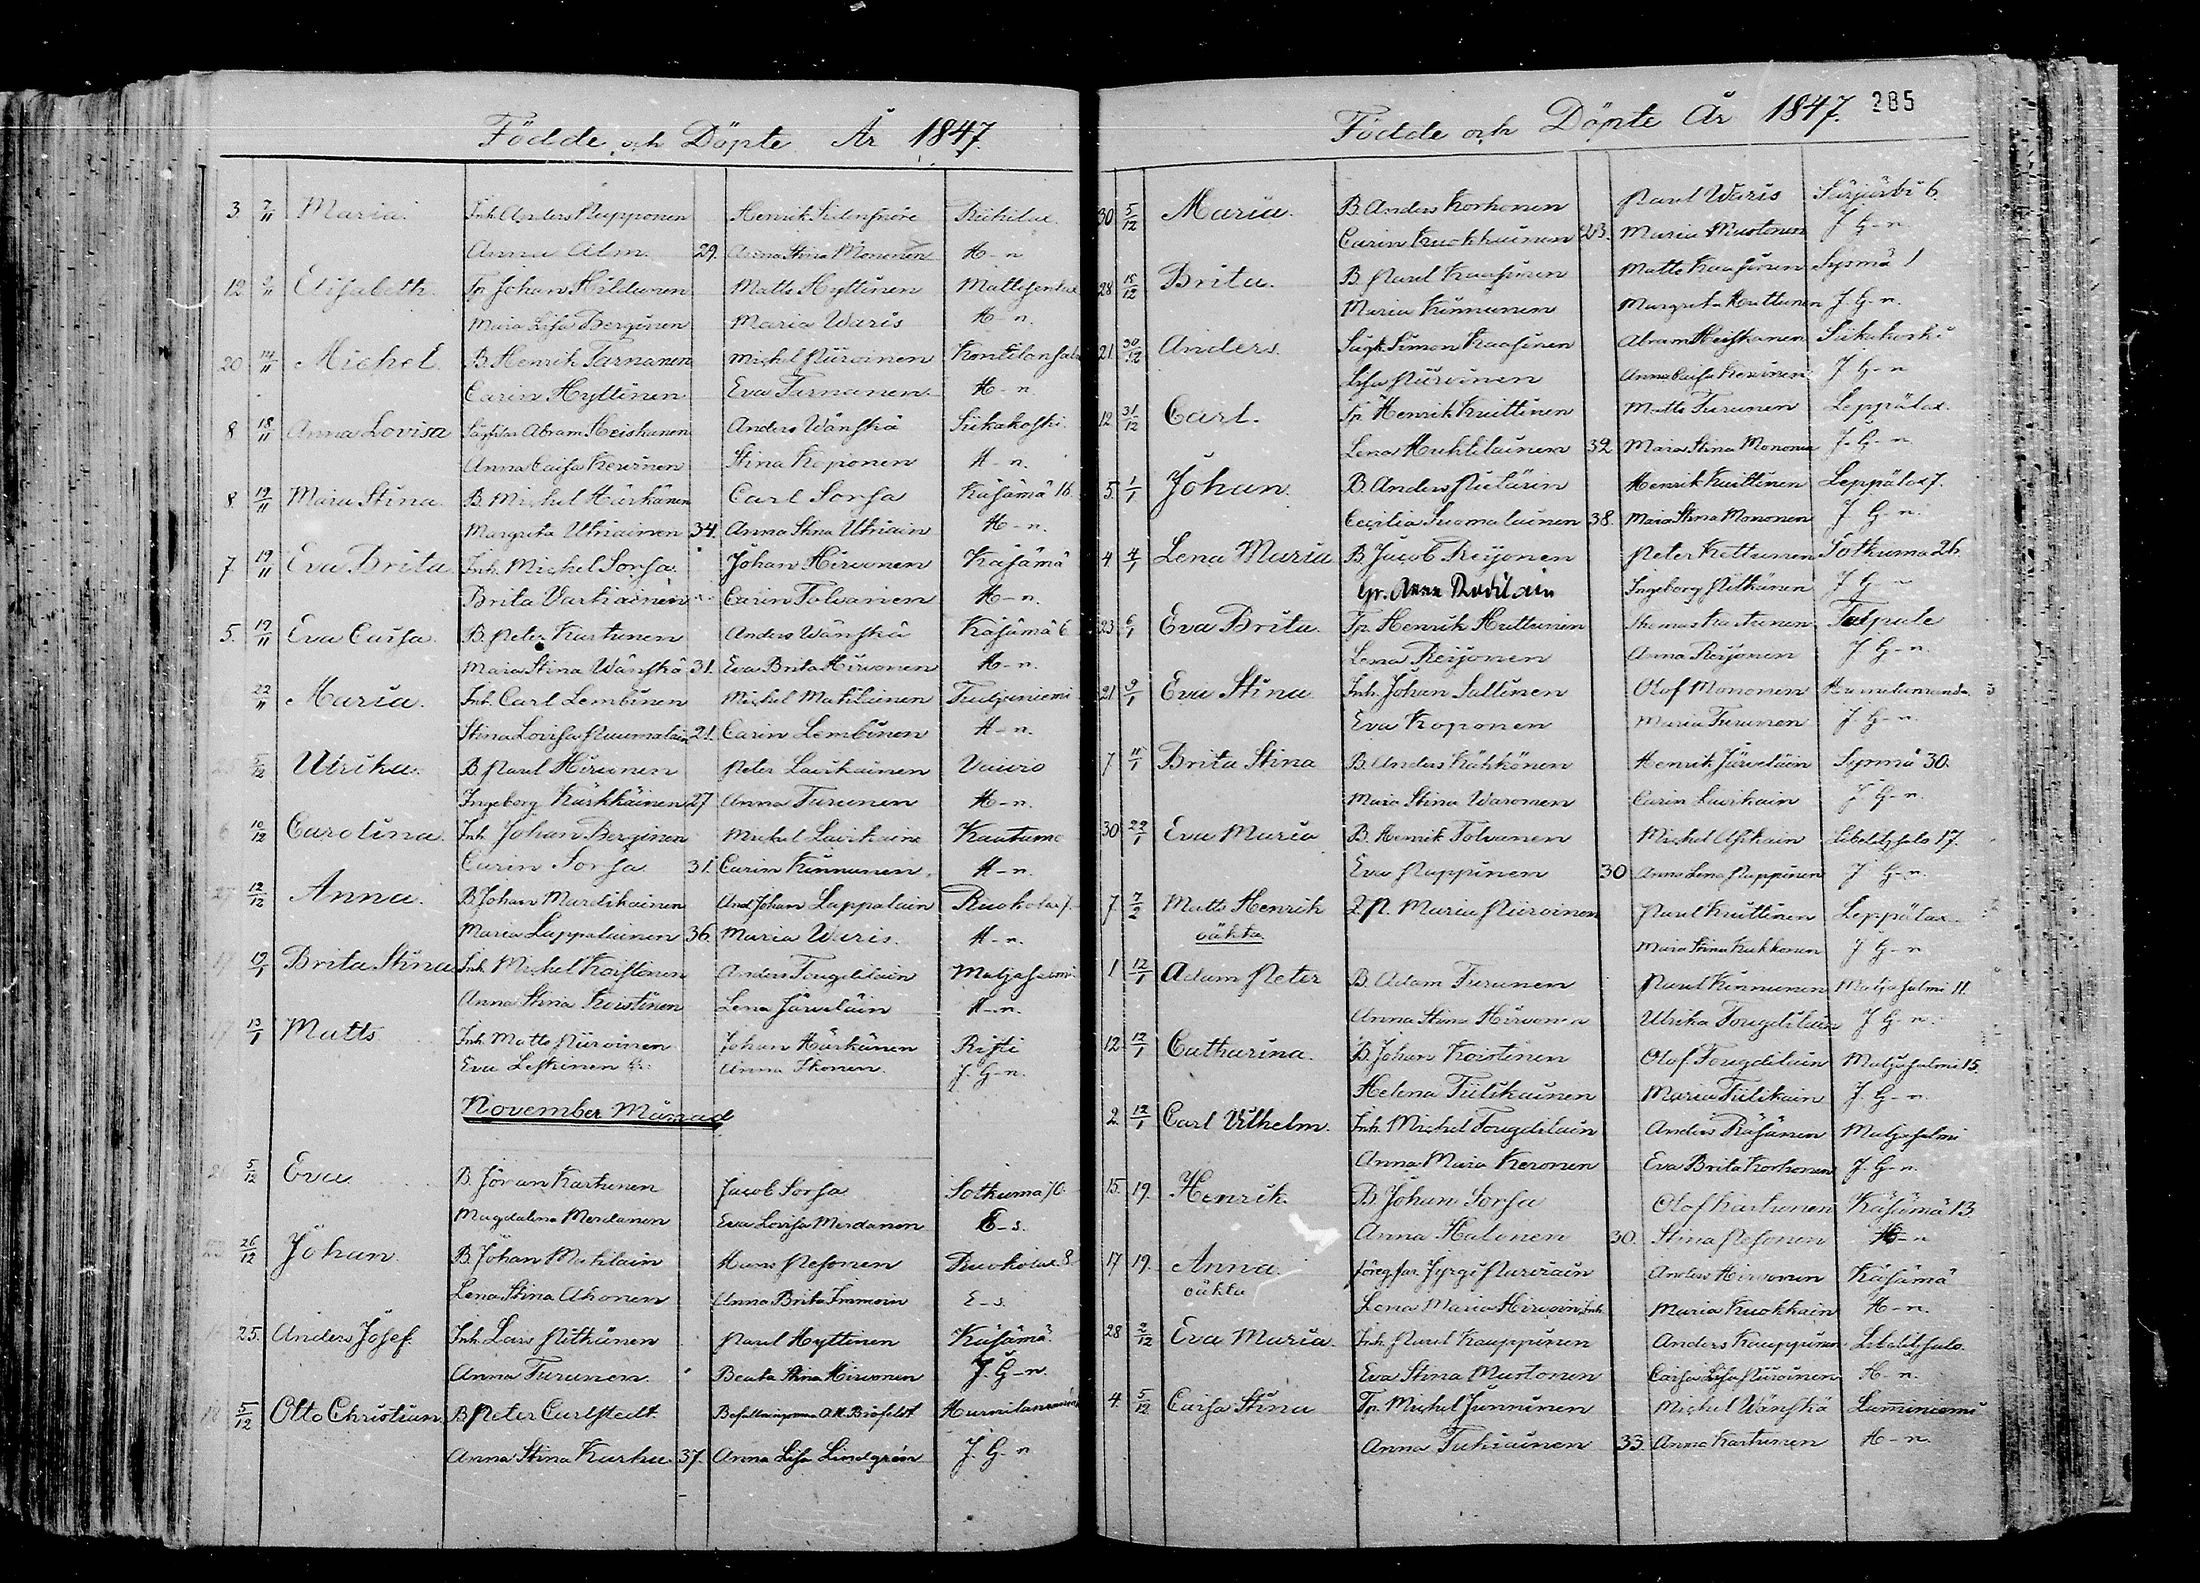 Födde och Döpte År 1847.
3 7/11 Maria. Inh. Anders Reupponen Henrik Sidensnöre Riihilax
Anna Alm. 29. Anna Stina Mononen H-n
12 9/11 Elisabeth. Tp. Johan Hiltunen Matts Hyttinen Mattisenlax
Maria Lisa Berginen Maria Waris H-n.
20 14/11 Michel. B. Henrik Tarnanen Michel Piiroinen Kontilansalo
Carin Hyttinen Eva Tarnanen H-n.
8 18/11 Anna Lovisa Abram Heiskanen Anders Wänskä Siikakoski.
Anna Caisa Keronen Stina Koponen H-n.
8 19/11 Maria Stina. B. Michel Härkänen Carl Sorsa Käsämä 16
Margreta Utriainen 34. Anna Stina Utriain H-n.
7 19/11 Eva Brita Inh. Michel Sorsa. Johan Hirvonen Käsämä
Brita Vartiainen Carin Tolvanen H-n.
5. 19/11 Eva Caisa. B. Peter Kartunen Anders Wänskä Käsämä 6
Maria Stina Wänskä 31. Eva Brita Hirvonen H-n.
22/11 Maria. Inh. Carl Lembinen Michel Matilainen Teudjuniemi
Stina Lovisa Puumalain 21. Carin Lembinen H-n.
5/12 Ulrika. B. Paul Hirvonen Peter Laukainen Vaivio
Ingeborg Kärkkäinen 27 Anna Turunen H-n.
6 10/12 Carolina. Inh. Johan Berginen Michel Lavikain Kautama
Carin Sorsa 31. Carin Kinnunen. H-n.
27 12/12 Anna. B. Johan Mardikainen And. Johan Lappalain Ruokolax 7.
Maria Lappalainen 36. Maria Waris. H-n.
19/1 Brita Stina Inh. Michel Koistinen Anders Tougdilain Maljasalmi
Anna Stina Koistinen Lena Järveläin H-n.
13/1 Matts Inh. Matts Piiroinen Johan Härkänen Risti
Eva Leskinen Anna Ikonen. J. G-n.
November Månad
5/12 Eva B. Jöran Kartunen Jacob Sorsa Sotkuma 10.
Magdalena Merdanen Eva Lovisa Merdanen E-s.
26/12 Johan. B. Johan Matilain Hans Pesonen Ruokolax 8.
Lena Stina Ahonen Anna Brita Immoin E-s.
25. Anders Josef. Inh. Lars Pitkänen Paul Hyttinen Käsämä
Anna Turunen. Beata Stina Hirvonen J. G-n.
5/12 Otto Christian B. Peter Carlstedt Befallningsman Brofeldt
Anna Stina Kurhu 37. Anna Lisa Lindgrén J. G-n
Födde och Döpte År 1847. 285
30 5/12 Maria. B. Anders Korhonen Paul Waris Särjärvi 6.
Carin Kuokkainen 23. Maria Mustonen J G-n
28 15/12 Brita. B. Paul Kaasinen Matts Kaasinen Sysmä 1
Maria Kinnunen Margreta Huttunen J. G-n.
21. 30/12 Anders. Simon Kaasinen Abram Heiskanen Siikakoski
Lisa Piiroinen Anna Caisa Keronen J G-n
12 31/12 Carl. Tp. Henrik Kuittinen Matts Turunen Leppälax.
Lena Huhtilainen 32. Maria Stina Monona J. G-n
5. 1/1 Johan. B. Anders Pielärin Henrik Kuittinen Leppälax 7.
Cecilia Suomalainen 38. Maria Stina Mononen J G-n.
4 4/1 Lena Maria B. Jacob Reijonen Peter Kettunen Sotkuma 26.
Gr. Anna Radilain Ingeborg Pitkänen J G-n
23 6/1 Eva Brita. Tp. Henrik Huttunen Thomas Kartunen Talpale
Lena Reijonen Anna Reijonen J G-n.
21 9/1 Eva Stina. Inh. Johan Sallinen Olof Mononen
Eva Koponen Maria Turunen J. G-n.
7 11/1 Brita Stina B. Anders Kähkönen Henrik Järveläin Sysmä 30.
Maria Stina Waronen Carin Lavikain J G-n.
30 22/1 Eva Maria B. Henrik Tolvanen Michel Asikain Libelitzsalo 17.
Eva Nuppinen 30 Anna Lena Nuppinen J G-n.
7. 7/2 Matts Henrik Q.P. Maria Piiroinen Paul Kuittinen Leppälax
oäkta Maria Stina Kukkonen J G-n
1 12/1 Adam Peter B. Adam Turunen Paul Kinnunen Maljasalmi 11.
Anna Stina Hirvonen Ulrika Tougdilain J G-n.
12. 12/1 Catharina. B. Johan Koistinen Olof Tougdilain Maljasalmi 15.
Helena Tiilikainen Maria Tiilikain J. G-n.
2. 12/1 Carl Vilhelm. Inh. Michel Tougdilain Anders Räsänen Maljasalmi
Anna Maria Keronen Eva Brita Korhonen J. G-n.
15. 19. Henrik. B. Johan Sorsa Olof Kartunen Käsämä 13.
Anna Halonen 30. Stina Pesonen H-n
17 19. Anna. Anders Hirvonen Käsämä
oäkta Lena Maria Hirvoin Inh. Maria Kuokkain H-n.
28 2/12 Eva Maria. Inh. Paul Kauppinen Anders Kauppinen Libelitzsalo.
Eva Stina Mustonen Caisa Lisa Piiroinen H-n.
4. 5/12 Caisa Stina Tp. Michel Junninen Michel Wänskä Lamminiemi
Anna Tukiainen 33. Anna Kartunen H-n.